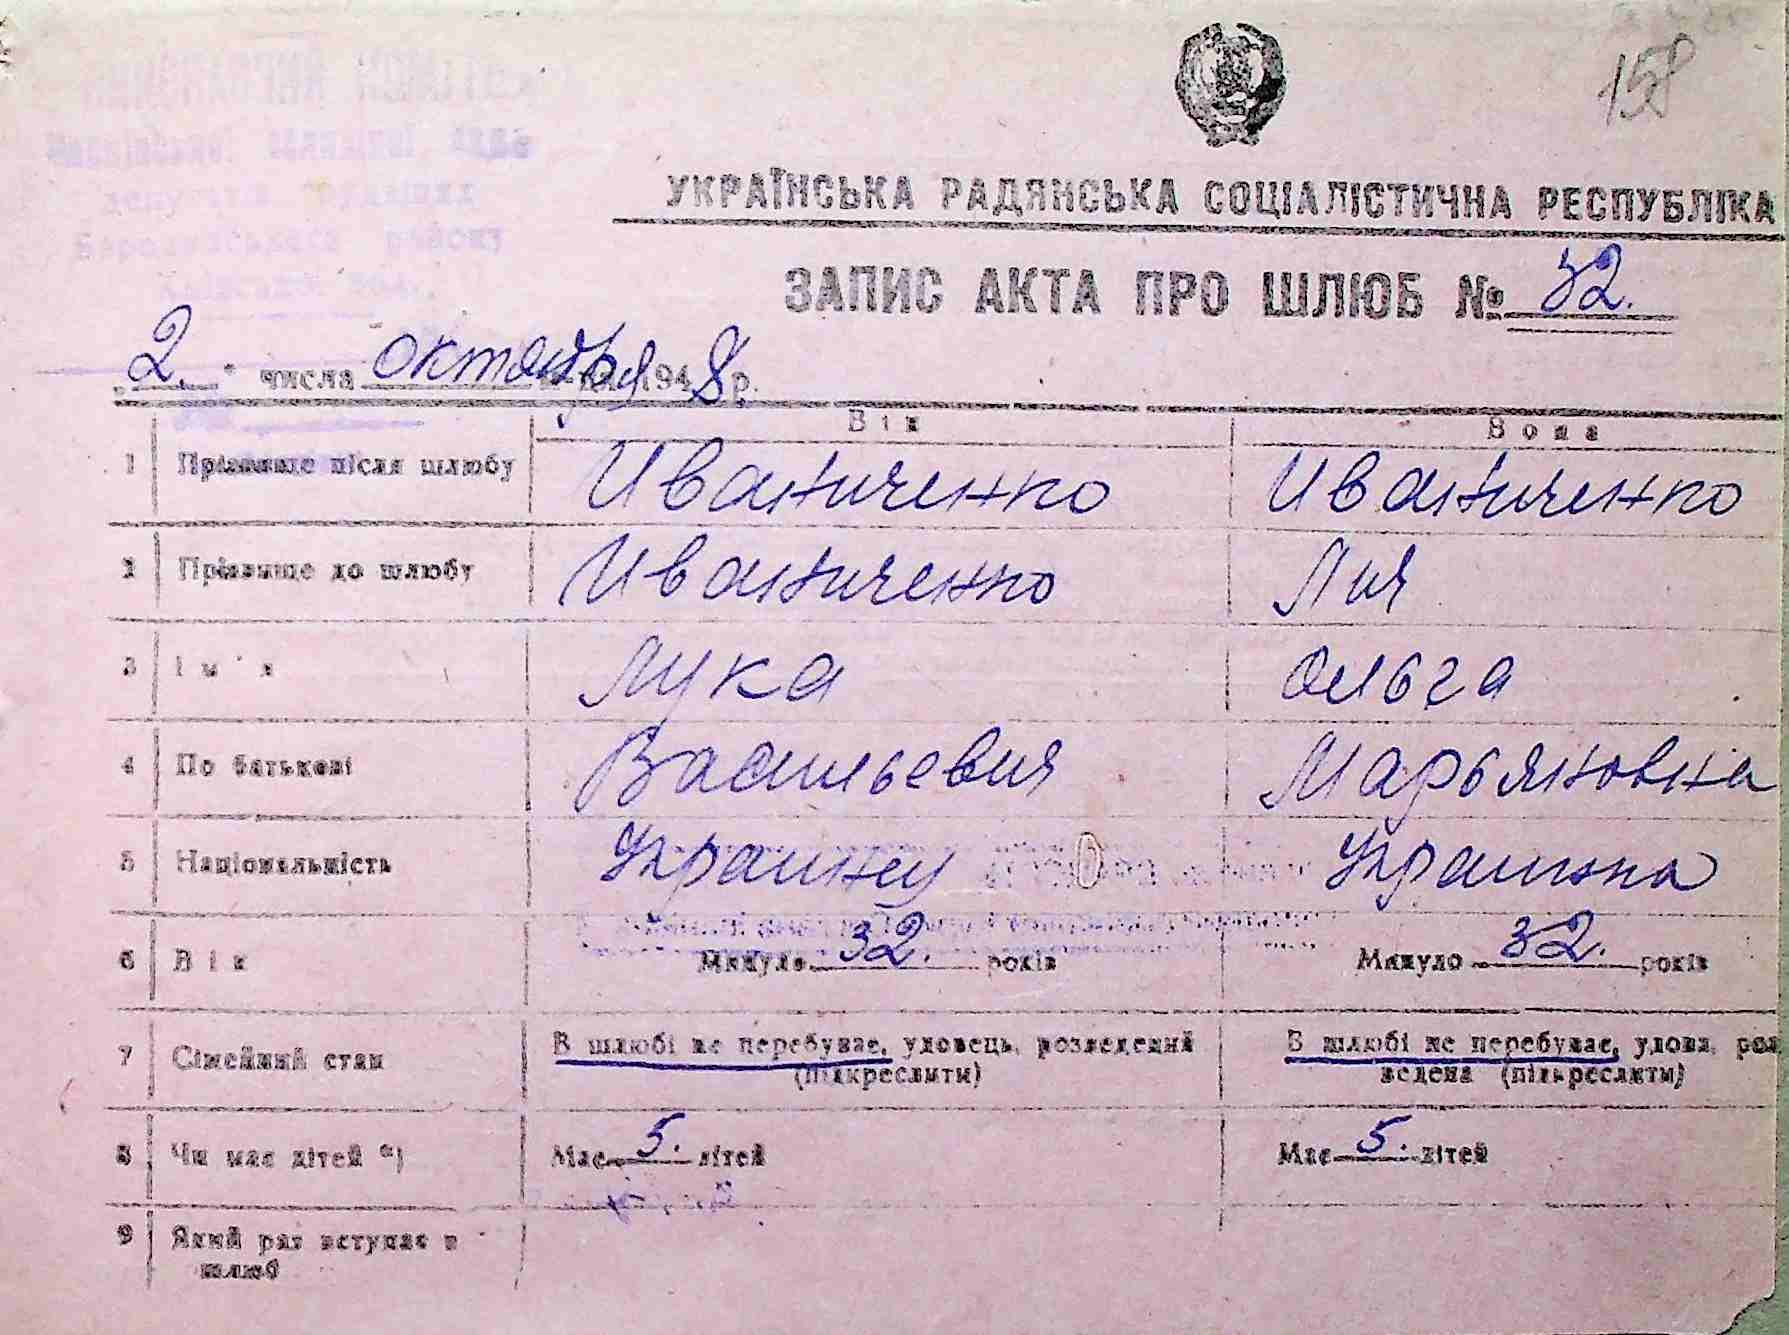 158
УКРАЇНСЬКА РАДЯНСЬКА СОЦІАЛІСТИЧНА РЕСПУБЛІКА
ЗАПИС АКТА ПРО ШЛЮБ № 32.
депутатів трудящих
району
„2.“ числа октября 1948 р.
Він Вона
1 Прізвище після шлюбу Иваниченко Иваниченко
2 Прізвище до шлюбу Иваниченко Лия
3 Ім'я Лука Ольга
4 По батькові Васильевич Марьяновна
5 Національність Украинец Украинка
6 Вік Минуло 32. років Минуло 32. років
7 Сімейний стан В шлюбі не перебуває, удовець, розведений (підкреслити) В шлюбі не перебуває, удова, роз
ведена (підкреслити)
8 Чи має дітей *) Має 5. дітей Має 5. дітей
9 Який раз вступає в
шлюб